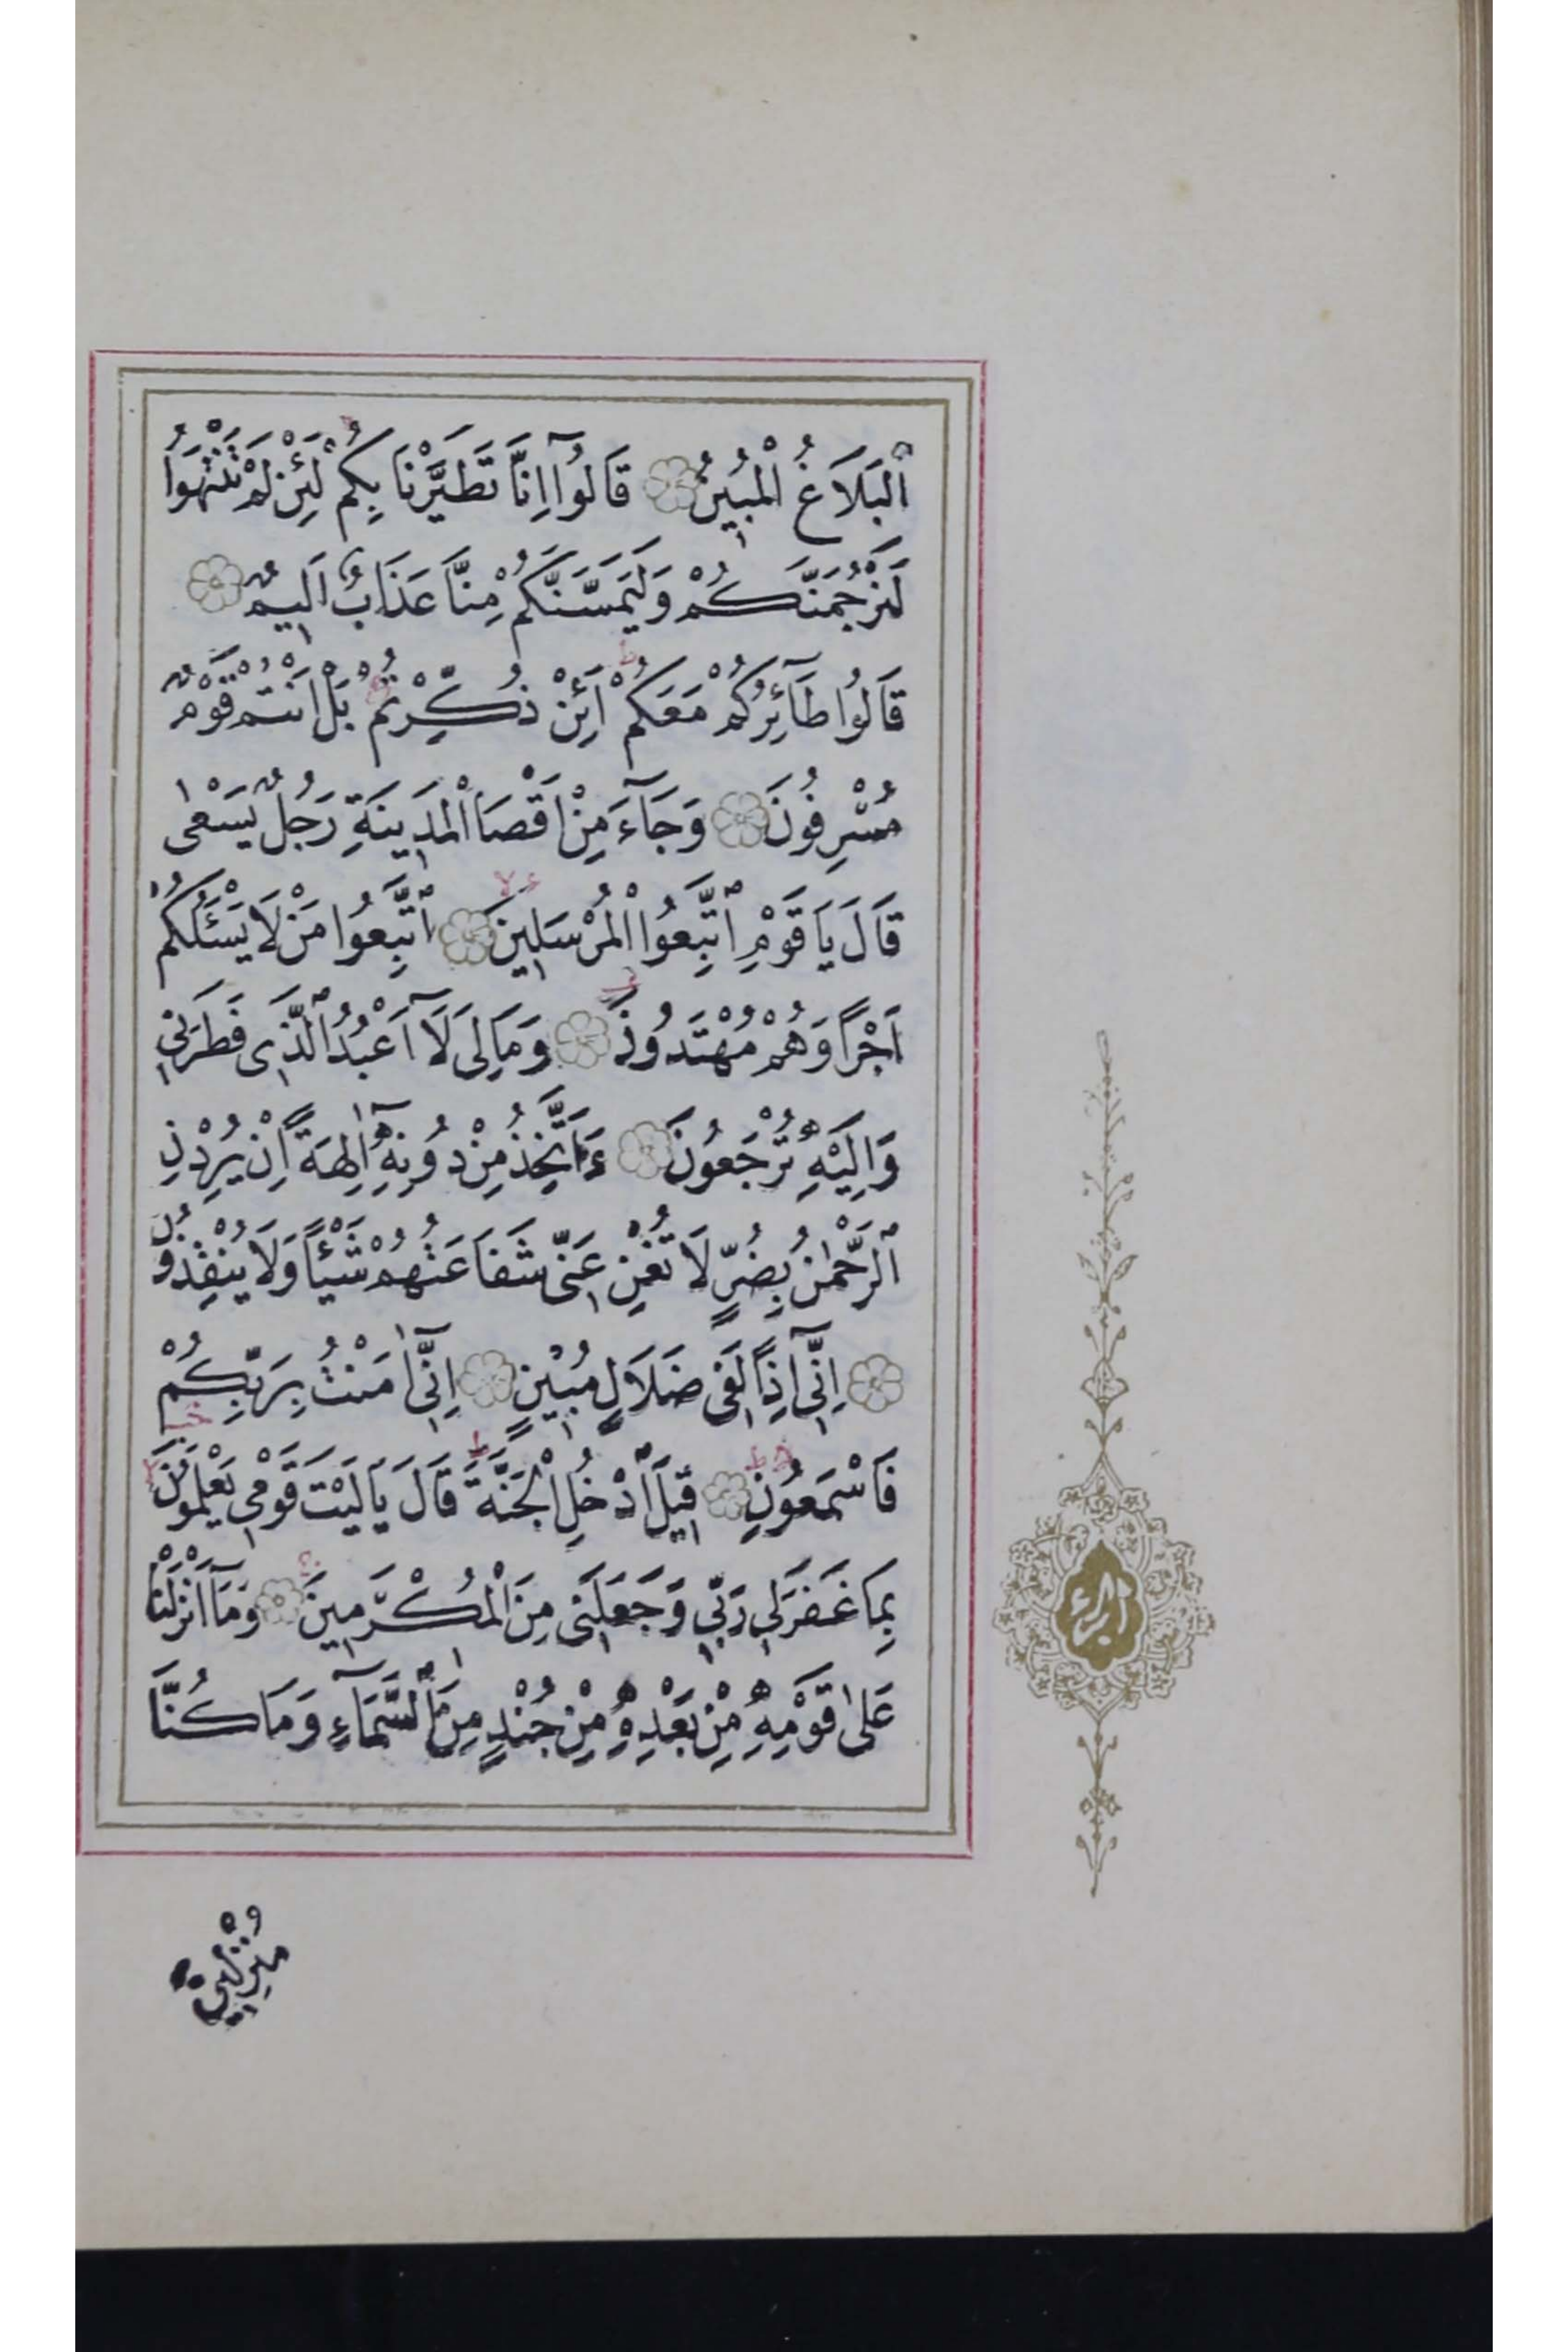 اَلْبَلَاغُ الْمُبٖينُ قَالُوٓا اِنَّا تَطَيَّرْنَا بِكُمْ لَئِنْ لَمْ تَنْتَهُوا
لَنَرْجُمَنَّكُمْ وَلَيَمَسَّنَّكُمْ مِنَّا عَذَابٌ اَلٖيمٌ
قَالُوا طَٓائِرُكُمْ مَعَكُمْ اَئِنْ ذُكِّرْتُمْ بَلْ اَنْتُمْ قَوْمٌ
مُسْرِفُونَ وَجَٓاءَ مِنْ اَقْصَا الْمَدٖينَةِ رَجُلٌ يَسْعٰى
قَالَ يَا قَوْمِ اتَّبِعُوا الْمُرْسَلٖينَ اِتَّبِعُوا مَنْ لَا يَسْـَٔلُكُمْ
اَجْرًا وَهُمْ مُهْتَدُونَ وَمَالِىَ لَٓا اَعْبُدُ الَّذٖى فَطَرَنٖى
وَاِلَيْهِ تُرْجَعُونَ ءَاَتَّخِذُ مِنْ دُونِهٖٓ اٰلِهَةً اِنْ يُرِدْنِ
الرَّحْمٰنُ بِضُرٍّ لَا تُغْنِ عَنّٖى شَفَاعَتُهُمْ شَيْـًٔا وَلَا يُنْقِذُونِ
اِنّٖٓى اِذًا لَفٖى ضَلَالٍ مُبٖينٍ اِنّٖٓى اٰمَنْتُ بِرَبِّكُمْ
فَاسْمَعُونِ قٖيلَ ادْخُلِ الْجَنَّةَ قَالَ يَا لَيْتَ قَوْمٖى يَعْلَمُونَ
بِمَا غَفَرَلٖى رَبّٖى وَجَعَلَنٖى مِنَ الْمُكْرَمٖينَ وَمَٓا اَنْزَلْنَا
عَلٰى قَوْمِهٖ مِنْ بَعْدِهٖ مِنْ جُنْدٍ مِنَ السَّمَٓاءِ وَمَا كُنَّا
مُنْزِلٖينَ